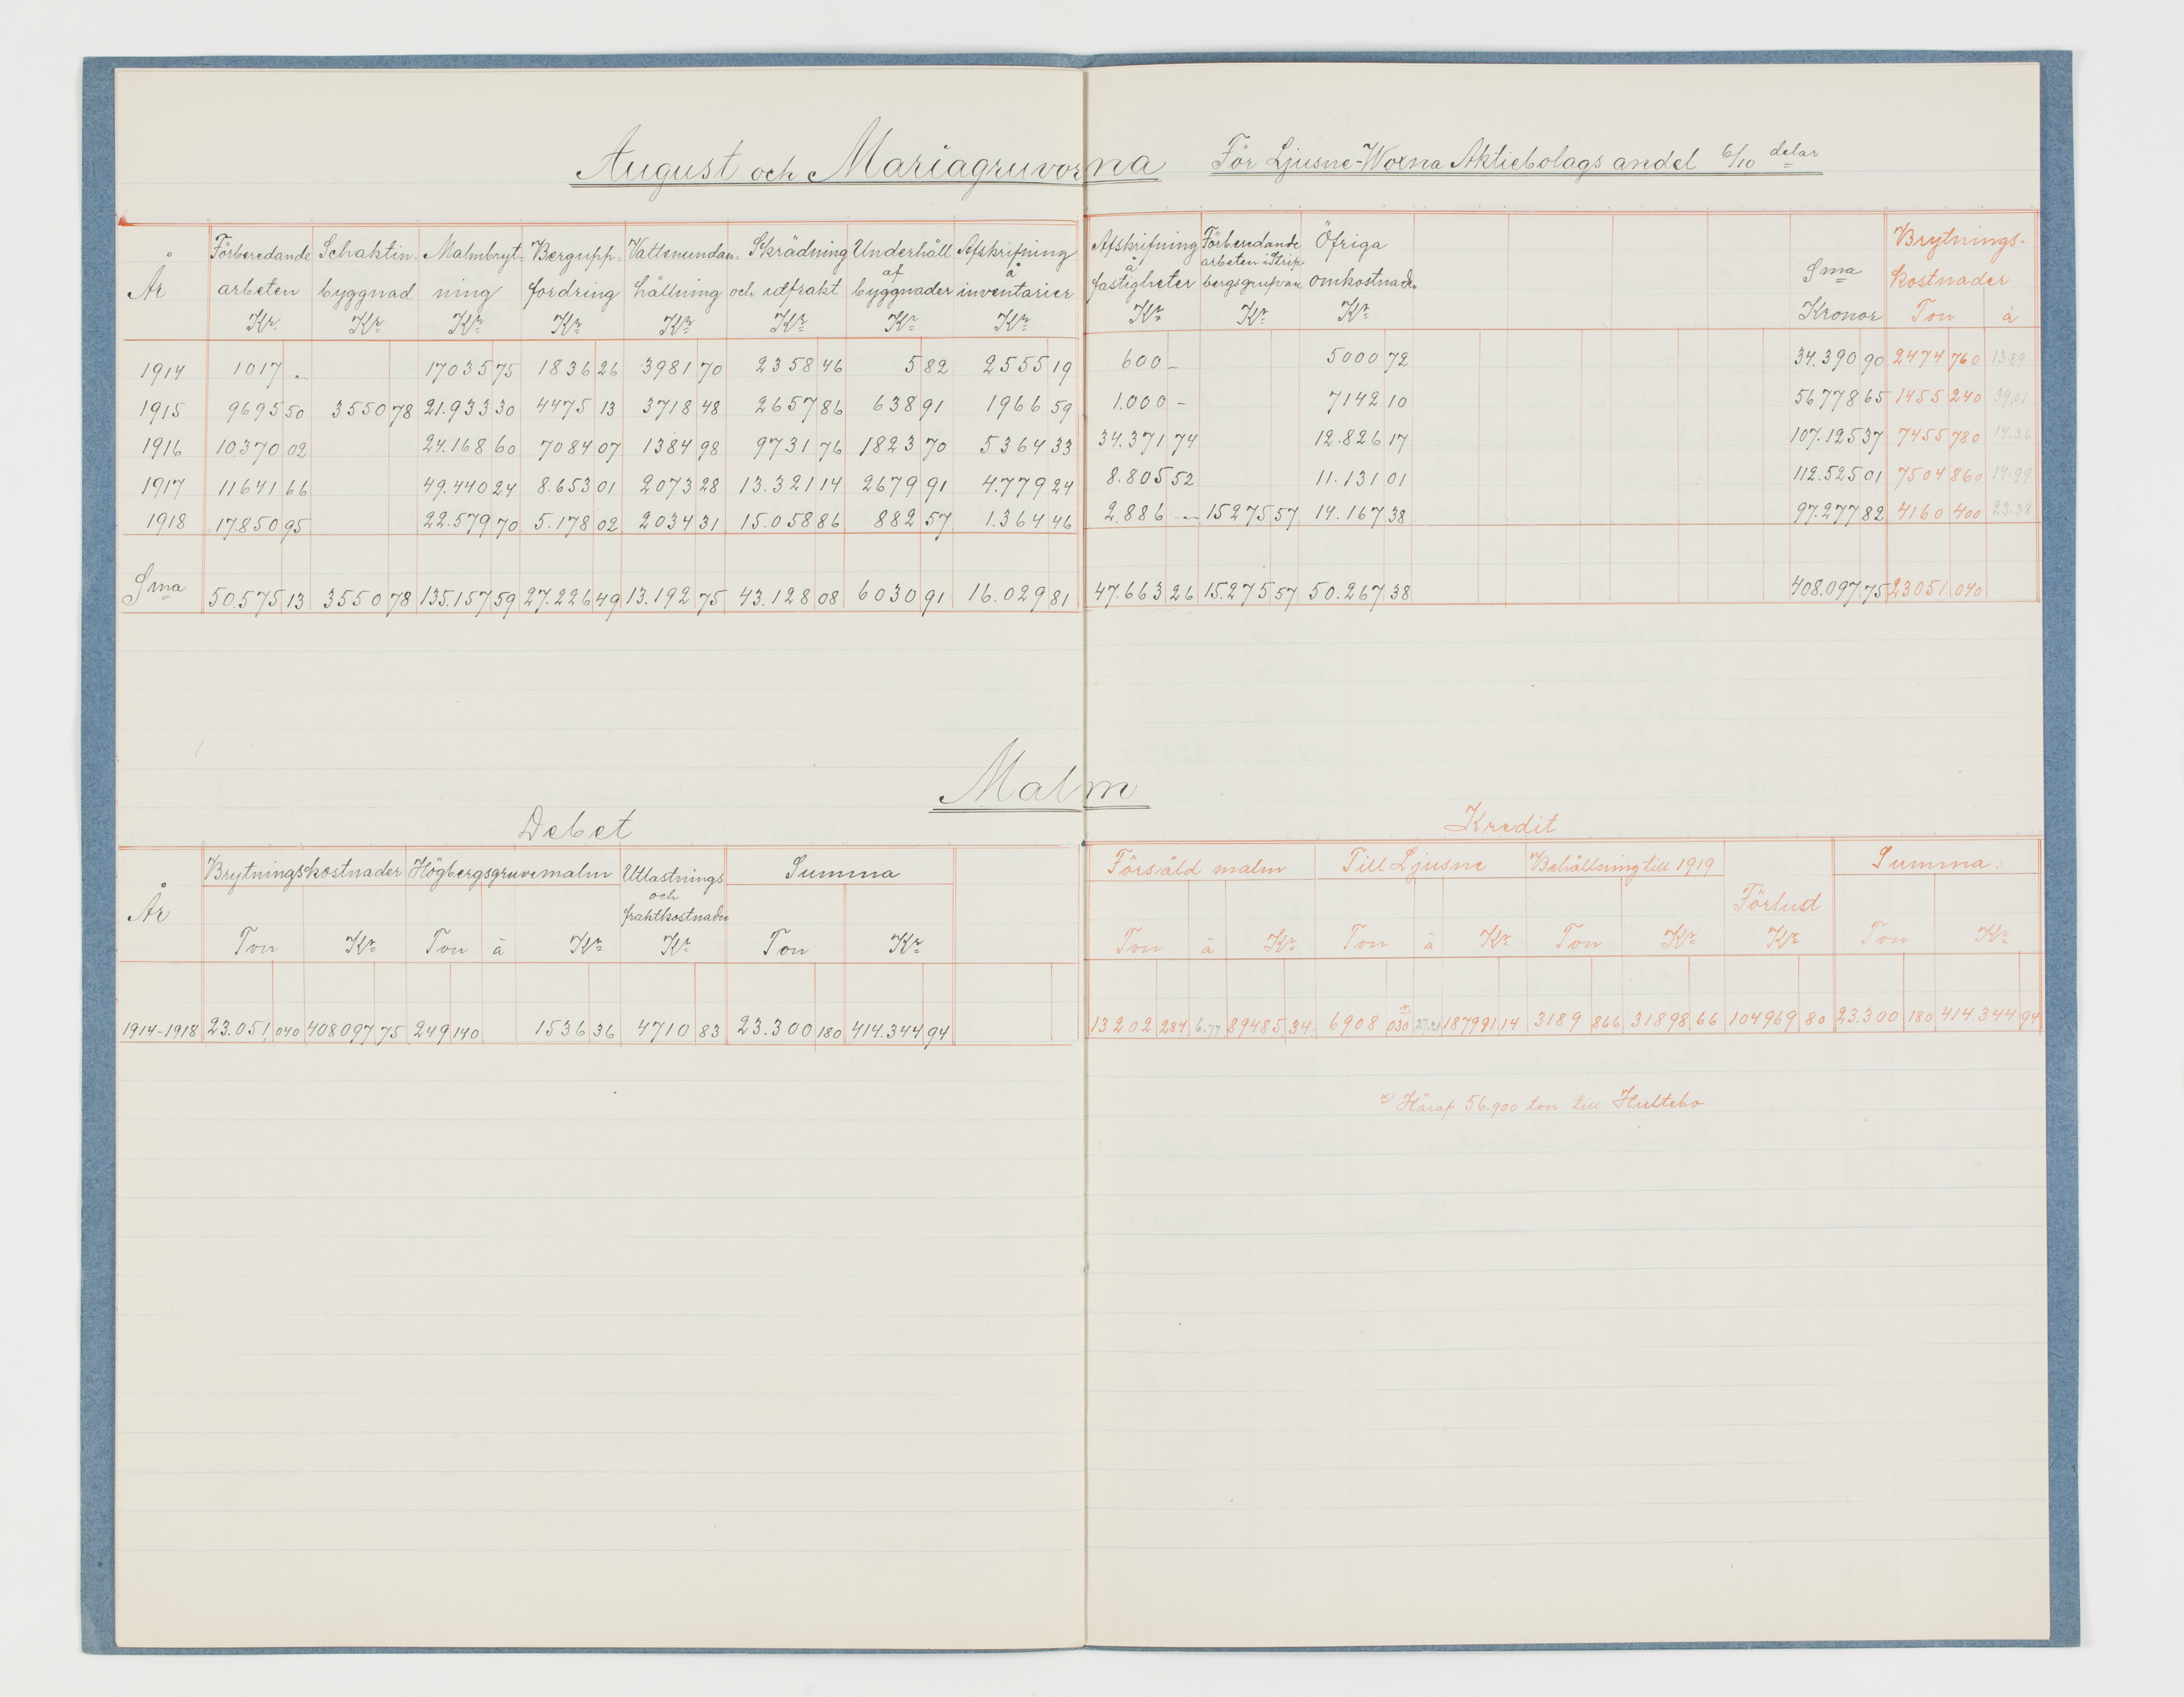 August och Mariagruvorna För Ljusne-Woxna Aktiebolags andel 6/10 delar
År Förberedande arbeten Kr Schaktbyggnad Kr Malmbrytning Kr Berguppfordring Kr Vattenundanhållning Kr Skrädning och utfrakt Kr Underhåll af byggnader Kr Afskrifning å inventarier Kr Afskrifning å fastigheter Kr Förberedande arbeten i Stripbergsgrufvan Kr Öfriga omkostnader Kr Sma Kronor Brytningskostnader Ton à
1914 1017 — 17035 75 1836 26 3981 70 2358 46 5 82 2555 19 600 — 5000 72 34.390 90 2474 760 13.89
1915 9695 50 3550 78 21.933 30 4475 13 3718 48 2657 86 638 91 1966 59 1.000 — 7142 10 56778 65 1455 240 39.01
1916 10370 02 24.168 60 7084 07 1384 98 9731 76 1823 70 5364 33 34.371 74 12.826 17 107.125 37 7455 780 14.36
1917 11641 66 49.440 24 8.653 01 2073 28 13.321 14 2679 91 4.779 24 8.805 52 11.131 01 112.525 01 7504 860 14.99
1918 17.850 95 22.579 70 5.178 02 2034 31 15.058 86 882 57 1.364 46 2.886 — 15275 57 14.167 38 97.277 82 4160 400 23.38
Sma 50.575 13 3550 78 135.157 59 27.226 49 13.192 75 43.128 08 6030 91 16.029 81 47.663 26 15.275 57 50.267 38 408.097 75 23051 040
Malm
Debet Kredit
År Brytningskostnader Högbergsgruvemalm Utlastnings och fraktkostnader Summa Försåld malm Till Ljusne Behållning till 1919 Förlust Summa
Ton Kr Ton à Kr Kr Ton Kr Ton à Kr Ton à Kr Ton Kr Kr Ton Kr
1914-1918 23.051 040 408097 75 249 140 1536 36 4710 83 23.300 180 414.344 94 13202 284 6.77 89485 34 6908 x) 030 27.21 187991 14 3189 866 31898 66 104969 80 23.300 180 414344 94
x) Häraf 56.900 ton till Hultebo